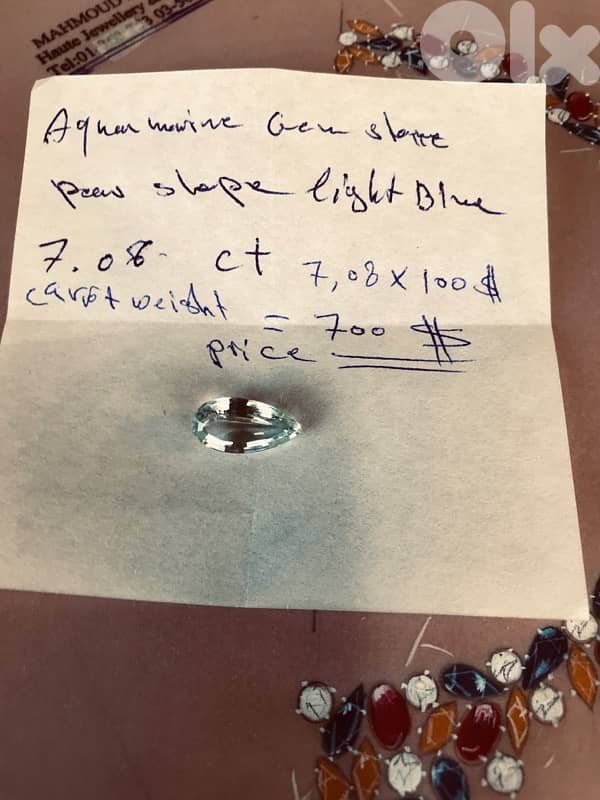 MAHMOUD
Haute Jewellery &
Tel:01
olx
Aquamarine Gem stone
pear shape light Blue
7.08 ct 7,08 x 100 $
carat weight = 700 $
price